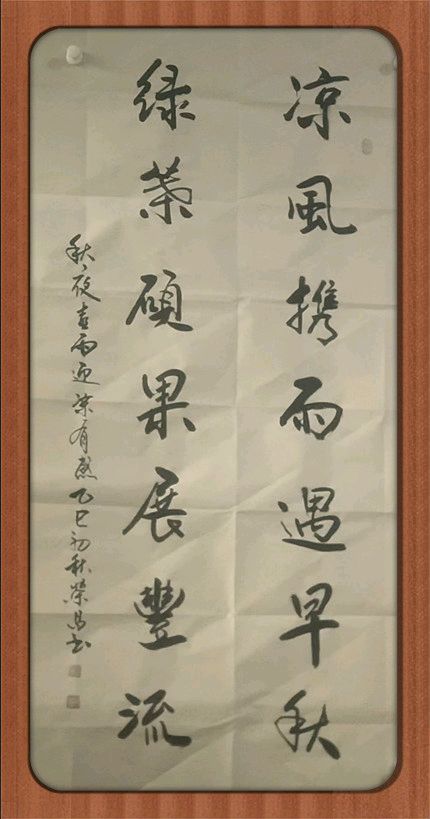 凉風携雨遇早秋
绿葉硕果展豐流
秋夜喜雨迎凉有感乙巳初秋榮昌书